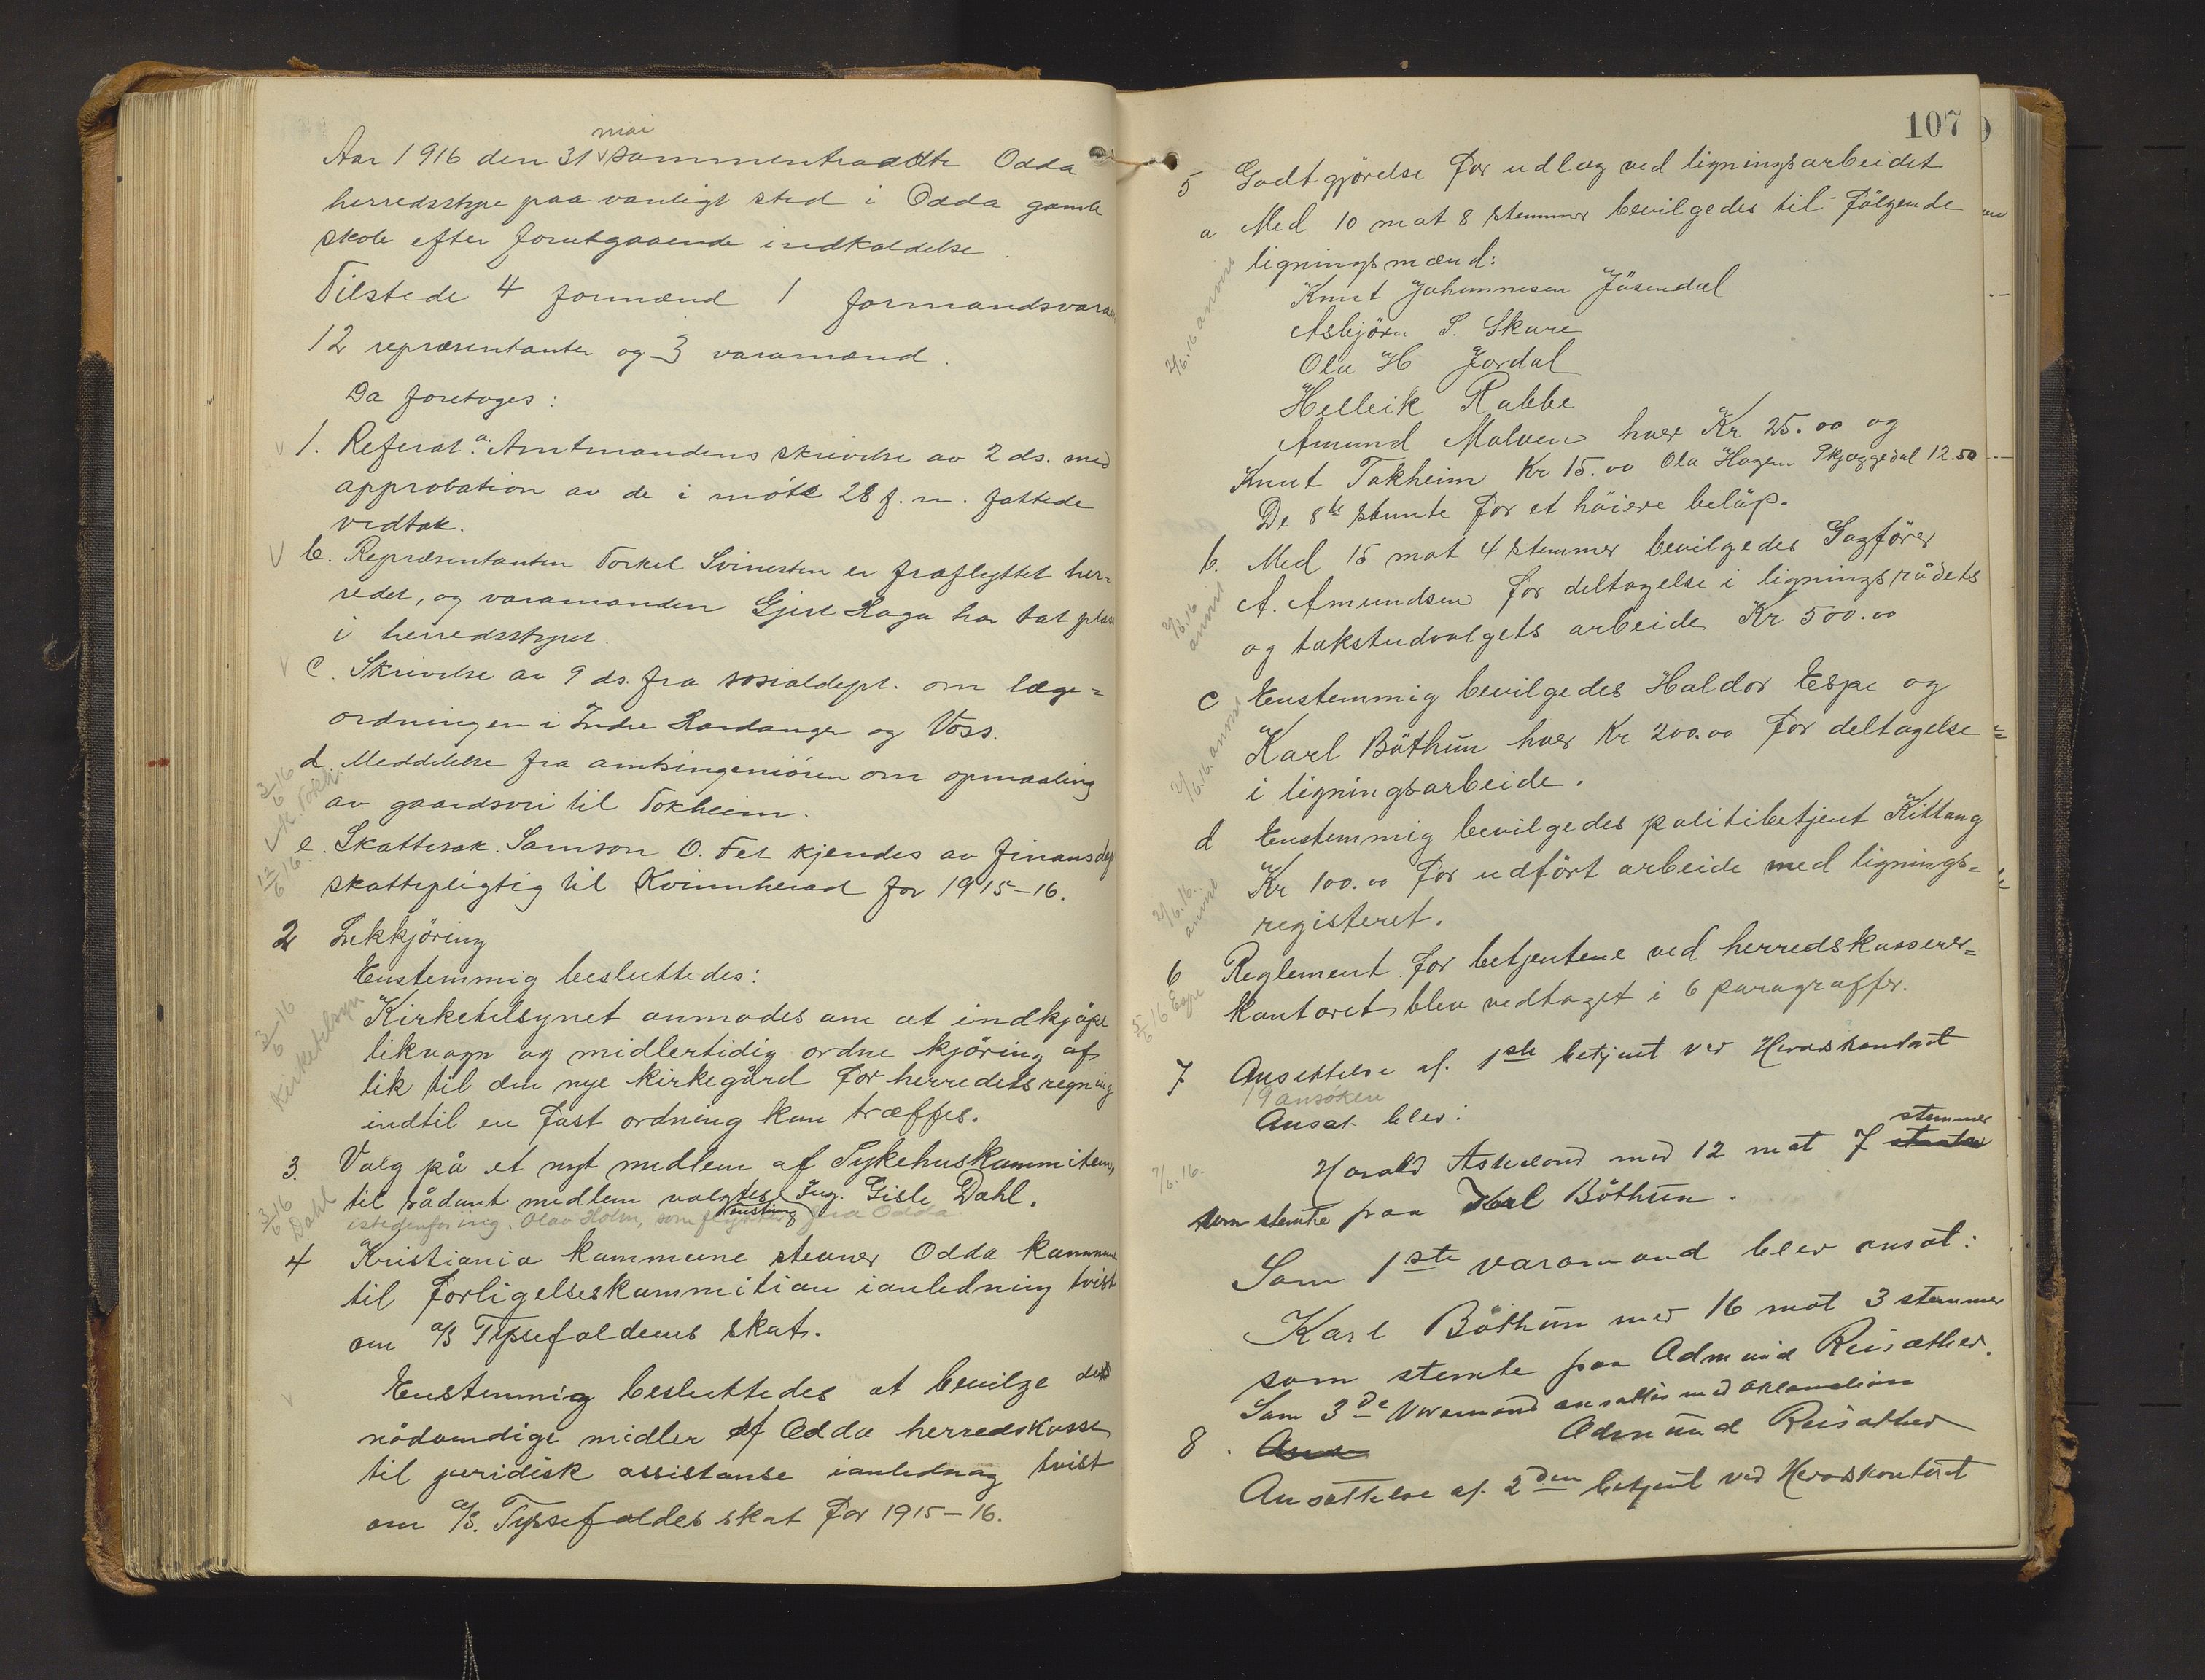 mai
Aar 1916 den 31 v sammentraadte Odda
herredsstyre paa vanligt sted i Odda gamle
skole efter forutgaaende indkaldelse.
Tilstede 4 formænd 1 formandsvara
12 repræsentanter og 3 varamænd.
Da foretoges:
1. Referat: a. Amtmandens skrivelse av 2 ds. med
approbation av de i møte 28 f. m. fattede
vedtak.
b. Repræsentanten Torkel Svinesten er fraflyttet her-
redet, og varamanden Gjert Haga har tat plas
i herredsstyret.
c. Skrivelse av 9 ds. fra sosialdept. om læge=
ordningen i Indre Hardanger og Voss.
d. Meddelelse fra amtsingeniören om opmaaling
av gaardsvei til Tokheim.
3/6 16
e. Skattesak. Samson O. Fet kjendes av finansdep
skattepligtig til Kvinnherad for 1915-16.
12/6 16.
2 Likkjöring
Enstemmig besluttedes:
Kirketilsynet anmodes om at indkjöpe
likvogn og midlertidig ordne kjöring af
lik til den nye kirkegård for herredets regning
indtil en fast ordning kan træffes.
3/6 16
Kirketilsyn
3. Valg på et nyt medlem af Sykehuskommiteen,
til sådant medlem valgtes enstemmig Ing. Gisle Dahl.
istedenfor ing. Olav Holm, som flytter fra Odda.
3/6 16
Dahl
4 Kristiania kommune stevner Odda kommune
til Forligelseskommitian ianledning tvist
om a/s Tyssefaldenes skat.
Enstemmig besluttedes at bevilge de
nödvendige midler af Odda herredskasse
til juridisk assistanse ianledning tvist
om a/s. Tyssefaldes skat for 1915-16.
107
5 Godtgjörelse for udlæg ved ligningsarbeidet
a Med 10 mot 8 stemmer bevilgedes til fölgende
ligningsmænd:
Knut Johannesen Jösendal
Asbjörn S. Skare
Ola H Jordal
Helleik Rabbe
Amund Malven hver Kr 25.00 og
Knut Tokheim Kr 15.00 Ola Hagen Skjæggedal 12.50
De 8te stemte for et höiere belöp.
2/6.16 anvist
b. Med 15 mot 4 stemmer bevilgedes Sagförer
A. Amundsen for deltagelse i ligningsrådets
og takstudvalgets arbeide Kr 500.00
2/6.16
anvist
c Enstemmig bevilgedes Haldor Espe og
Karl Böthun hver Kr 200.00 for deltagelse
i ligningsarbeide.
2/6.16. anvist
d Enstemmig bevilgedes politibetjent Kittang
Kr 100.00 for udfört arbeide med lignings=
registeret.
2/6.16.
anvist
6 Reglement for betjentene ved herredskasserer=
kontoret blev vedtaget i 6 paragraffer.
5/6 16 Espe
7 Ansettelse af 1ste betjent ved Heradskontoret
19 ansöken
Ansat blev:
stemmer
Harald Askeland med 12 mot 7
som stemte paa Karl Böthun.
7/6. 16.
Som 1ste varamand blev ansat:
Karl Böthun med 16 mot 3 stemmer
som stemte paa Admund Reisæther.
Som 3de Varamand ansattes med aklamation
Admund Reisæther
8.
Ansættelse af 2den betjent ved Heradskontoret